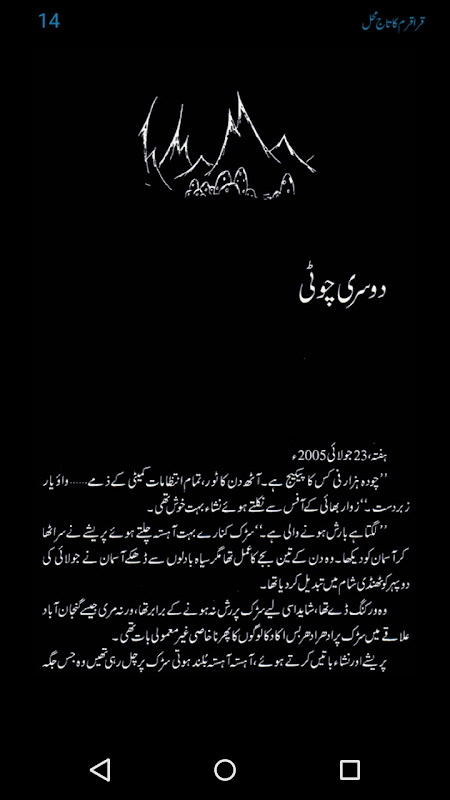 14
قراقرم کا تاج محل
دوسری چوٹی
ہفتہ، 23 جولائی 2005ء
’’چودہ ہزار فی کس کا پیکیج ہے۔ آٹھ دن کا ٹور، تمام انتظامات کمیٹی کے ذمے...... واؤ یار
زبردست۔‘‘ زوار بھائی کے آفس سے نکلتے ہوئے نشاء بہت خوش تھی۔
’’لگتا ہے بارش ہونے والی ہے۔‘‘ سڑک کنارے بہت آہستہ چلتے ہوئے پریشے نے سر اٹھا
کر آسمان کو دیکھا۔ وہ دن کے تین بجے کا عمل تھا مگر سیاہ بادلوں سے ڈھکے آسمان نے جولائی کی
دوپہر کو ٹھنڈی شام میں تبدیل کر دیا تھا۔
وہ ورکنگ ڈے تھا، شاید اسی لیے سڑک پر رش نہ ہونے کے برابر تھا، ورنہ مری جیسے گنجان آباد
علاقے میں سڑک پر ادھر ادھر بس اکا دکا لوگوں کا پھرنا خاصی غیر معمولی بات تھی۔
پریشے اور نشاء باتیں کرتے ہوئے، آہستہ آہستہ بلند ہوتی سڑک پر چل رہی تھیں وہ جس جگہ